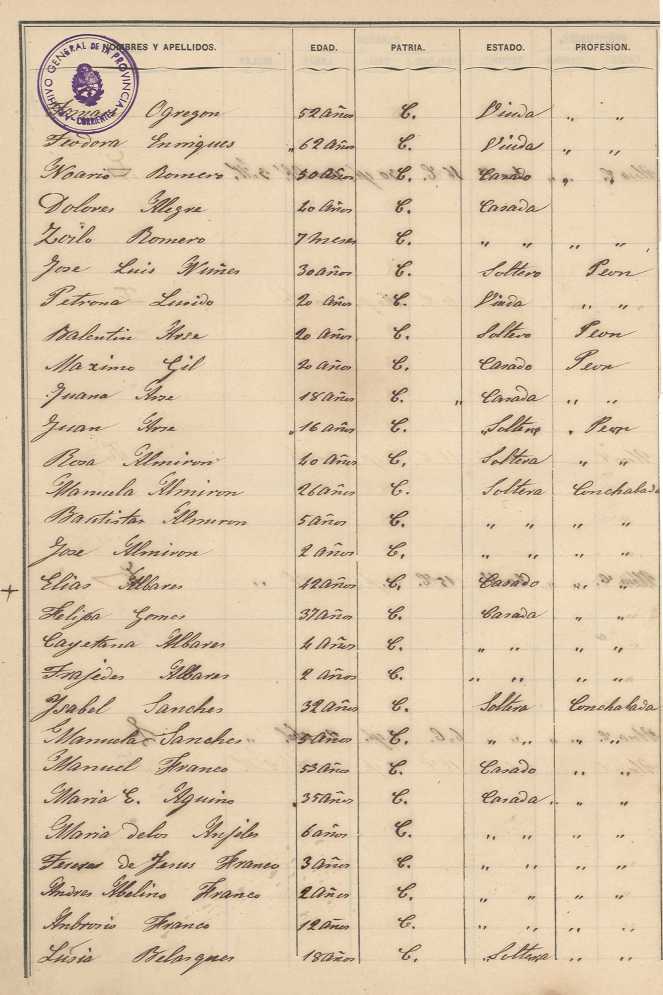 NOMBRES Y APELLIDOS. EDAD. PATRIA. ESTADO. PROFESION.
ARCHIVO GENERAL DE LA PROVINCIA CORRIENTES
Ogregon 52 años C. Viuda " "
Teodora Enrriques 62 años C. Viuda " "
Romero 50 años C. Casado " "
Dolores Alegre 20 años C. Casada
Zoilo Romero 7 meses C. " " " "
Jose Luis Nuñes 30 años C. Soltero Peon
Petrona Lusido 20 años C. Viuda " "
Balentin Arse 20 años C. Soltero Peon
Maximo Gil 20 años C. Casado Peon
Juana Arse 18 años C. Casada " "
Juan Arse 16 años C. Soltero Peon
Rosa Almiron 40 años C. Soltera " "
Manuela Almiron 26 años C. Soltera Conchalada
Bautista Almiron 5 años C. " " " "
Jose Almiron 2 años C. " " " "
Elias Albares 42 años C. Casado " "
Felipa Gomes 37 años C. Casada " "
Cayetana Albares 4 años C. " " " "
Albares 2 años C. " " " "
Ysabel Sanches 32 años C. Soltera Conchalada
Manuela Sanches 5 años C. " " " "
Manuel Franco 53 años C. Casado " "
Maria C. Aquino 35 años C. Casada " "
Maria delos Anjeles 6 años C. " " " "
Teresa de Jesus Franco 3 años C. " " " "
Andres Abelino Franco 2 años C. " " " "
Ambrosio Franco 12 años C. " " " "
Lusia Belasques 18 años C. Soltera " "